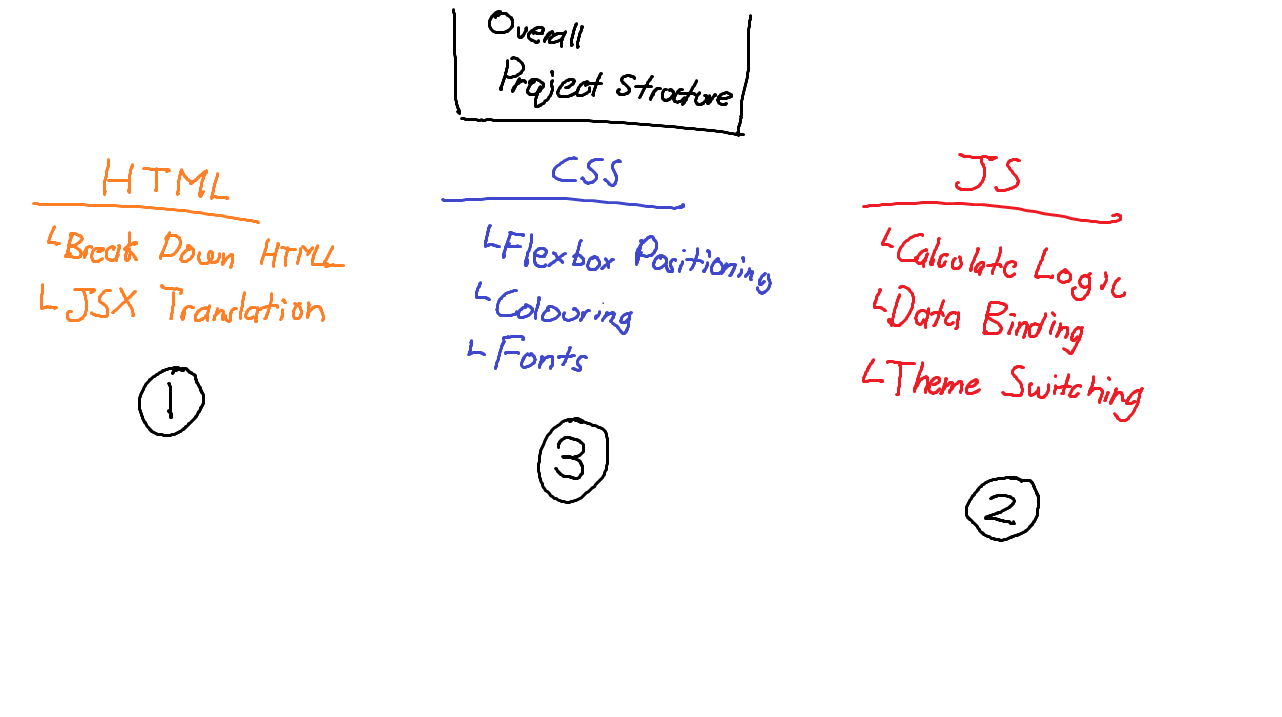 Overall
Project Structure
HTML
Break Down HTML
JSX Translation
1
CSS
Flexbox Positioning
Colouring
Fonts
3
JS
Calculate Logic
Data Binding
Theme Switching
2